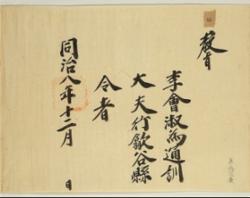 敎旨
李會淑爲通訓
大夫行歙谷縣
令者
同治八年十二月　日